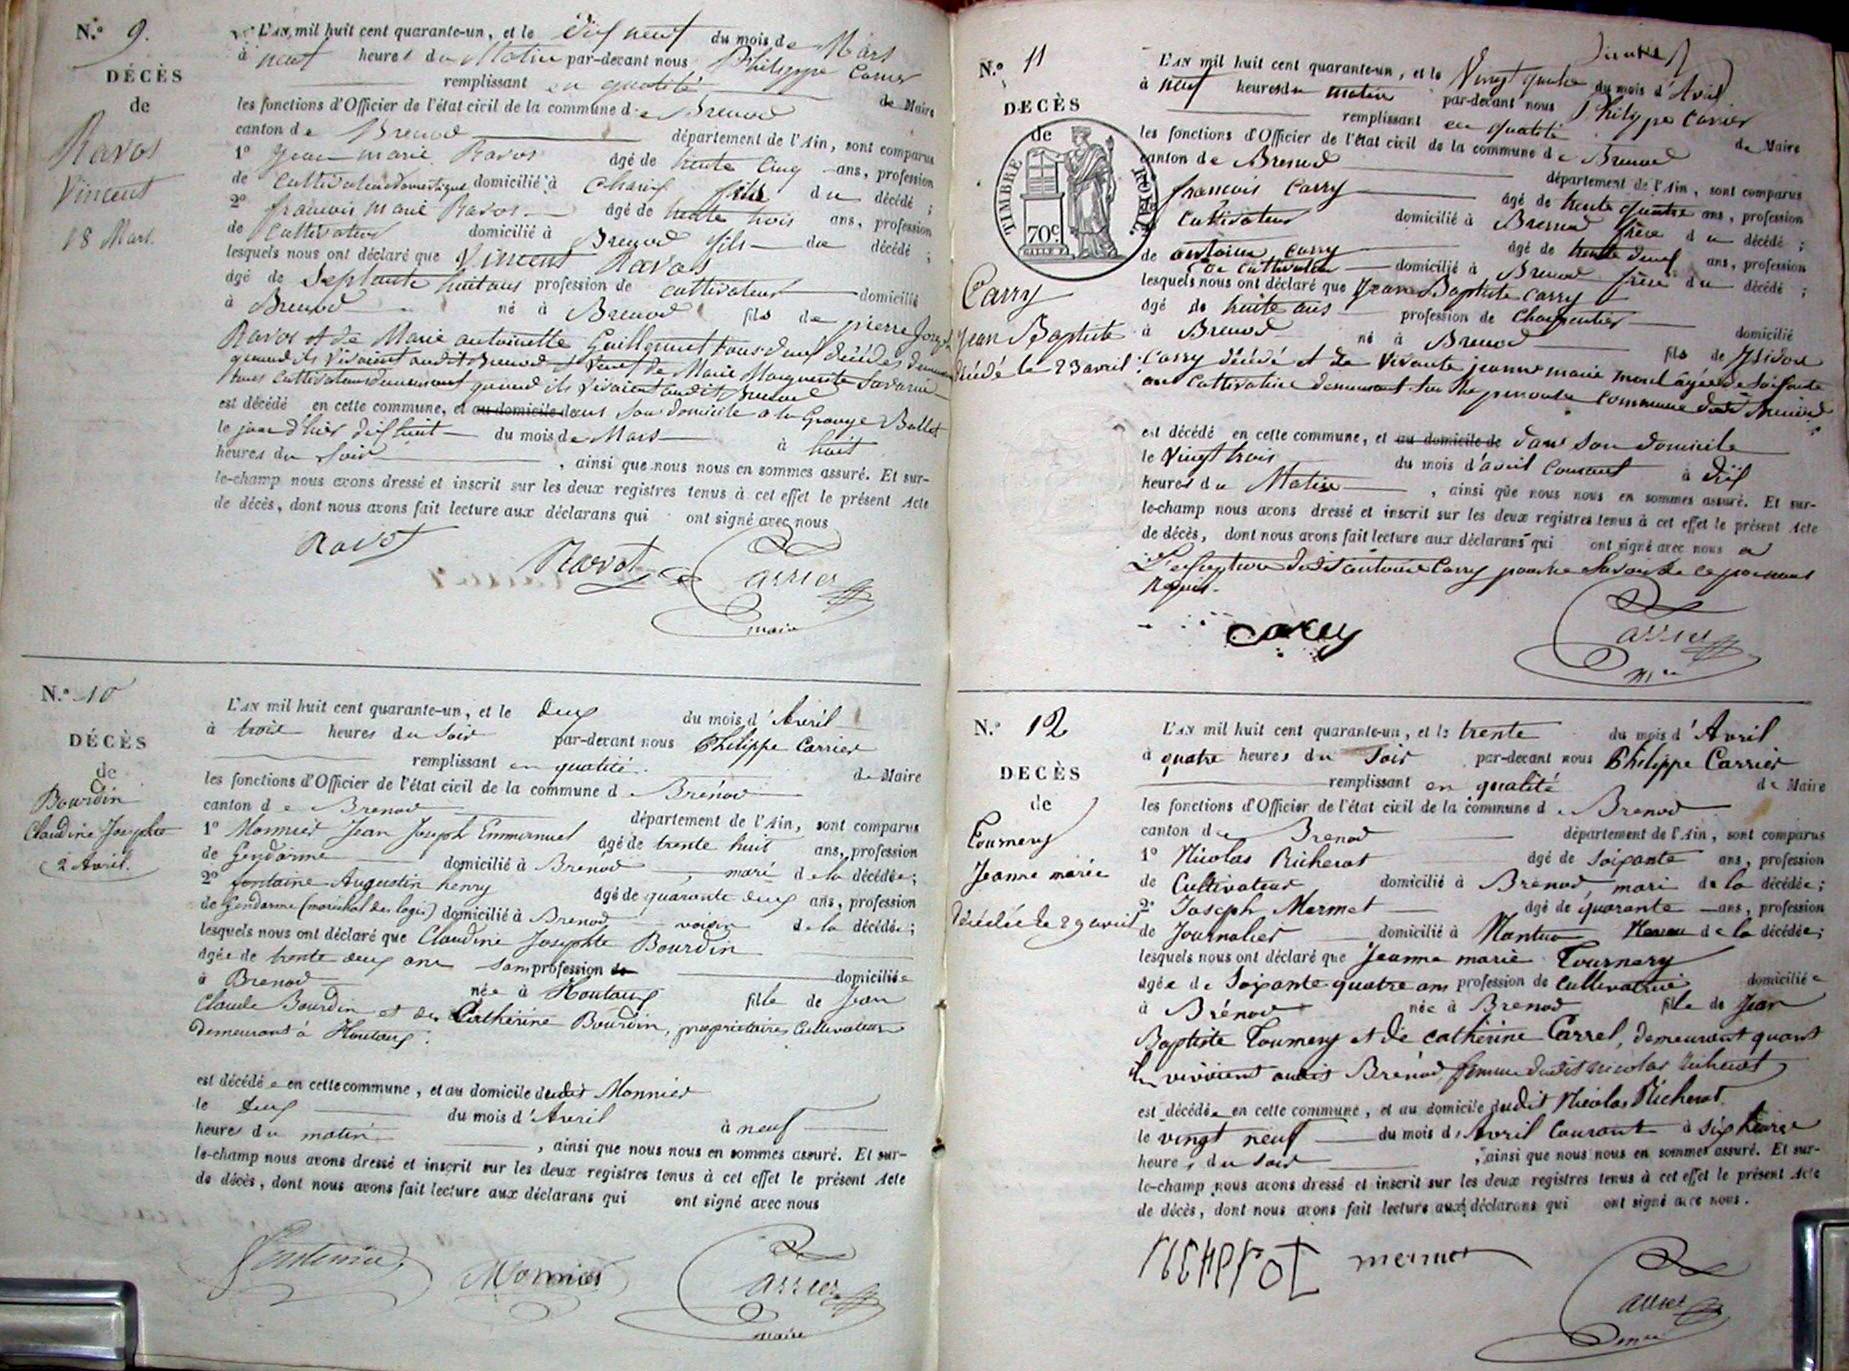 N.° 9.
DÉCÈS
de
Ravos
Vincent
18 Mars.
L'AN mil huit cent quarante-un, et le dix neuf du mois de Mars
à neuf heures du Matin par-devant nous Philippe Carrier
remplissant en qualité de Maire
les fonctions d'Officier de l'état civil de la commune de Brenod
canton de Brenod département de l'Ain, sont comparus
1° Jean marie Ravos âgé de trente cinq ans, profession
de Cultivateur domestique domicilié à fils du décédé;
2° francois marie Ravos âgé de trente trois ans, profession
de Cultivateur domicilié à Brenod fils du décédé;
lesquels nous ont déclaré que Vincent Ravos
âgé de Septante huit ans profession de cultivateur domicilié
à Brenod né à Brenod fils de pierre Joseph
Ravos et de Marie antoinette Guillermet tous deux décédés
quand ils vivaient audit Brenod et veuf de Marie Marguerite
quand ils vivaient audit Brenod
est décédé en cette commune, et au domicile dans son domicile a la Grange Ballet
le jour d'hier dix huit du mois de Mars à huit
heures du Soir, ainsi que nous nous en sommes assuré. Et sur-
le-champ nous avons dressé et inscrit sur les deux registres tenus à cet effet le présent Acte
de décès, dont nous avons fait lecture aux déclarans qui ont signé avec nous
Ravot Ravot Carrier
maire
N.° 10
DÉCÈS
de
Bourdin
Claudine Josephte
2 Avril.
L'AN mil huit cent quarante-un, et le deux du mois d'Avril
à trois heures du Soir par-devant nous Philippe Carrier
remplissant en qualité de Maire
les fonctions d'Officier de l'état civil de la commune de Brénod
canton de Brenod département de l'Ain, sont comparus
1° Monnier Jean Joseph Emmanuel âgé de trente huit ans, profession
de Gendarme domicilié à Brénod, mari de la décédée;
2° fontaine Augustin henry âgé de quarante deux ans, profession
de Gendarme (maréchal des logis) domicilié à Brenod voisin de la décédée;
lesquels nous ont déclaré que Claudine Josephte Bourdin
âgée de trente deux ans sans profession de domiciliée
à Brenod née à Houtaux fille de Jean
Claude Bourdin et de Catherine Bourdin, proprietaires Cultivateurs
demeurant à Houtaux.
est décédée en cette commune, et au domicile dudit Monnier
le deux du mois d'Avril à neuf
heures du matin, ainsi que nous nous en sommes assuré. Et sur-
le-champ nous avons dressé et inscrit sur les deux registres tenus à cet effet le présent Acte
de décès, dont nous avons fait lecture aux déclarans qui ont signé avec nous
Monnier Carrier
maire
N.° 11
DÉCÈS
de
TIMBRE ROYAL
70c
Carry
Jean Baptiste
décédé le 23 avril.
L'AN mil huit cent quarante-un, et le Vingt quatre du mois d'Avril
à neuf heures du matin par-devant nous Philippe Carrier
remplissant en qualité de Maire
les fonctions d'Officier de l'état civil de la commune de Brenod
canton de Brenod département de l'Ain, sont comparus
francois Carry âgé de trente quatre ans, profession
Cultivateur domicilié à Brenod frère du décédé;
antoine carry âgé de trente deux ans, profession
de cultivateur domicilié à Brenod frère du décédé;
lesquels nous ont déclaré que Jean Baptiste carry
âgé de trente ans profession de Charpentier domicilié
à Brenod né à Brenod fils de Isidore
Carry décédé et de Vivante jeanne marie âgée de soixante
ans Cultivatrice demeurant commune dudit Brenod
est décédé en cette commune, et au domicile de dans son domicile
le Vingt trois du mois d'avril Courant à dix
heures du Matin, ainsi que nous nous en sommes assuré. Et sur-
le-champ nous avons dressé et inscrit sur les deux registres tenus à cet effet le présent Acte
de décès, dont nous avons fait lecture aux déclarans qui ont signé avec nous a
L'exception dudit antoine Carry pour ne Savoir de ce par nous
requis.
carry Carrier
N.° 12
DÉCÈS
de
Tournery
Jeanne marie
décédée le 29 avril
L'AN mil huit cent quarante-un, et le trente du mois d'Avril
à quatre heures du Soir par-devant nous Philippe Carrier
remplissant en qualité de Maire
les fonctions d'Officier de l'état civil de la commune de Brenod
canton de Brenod département de l'Ain, sont comparus
1° Nicolas Richerot âgé de Soixante ans, profession
de Cultivateur domicilié à Brenod, mari de la décédée;
2° Joseph Mermet âgé de quarante ans, profession
de Journalier domicilié à Nantua Neveu de la décédée;
lesquels nous ont déclaré que Jeanne marie Tournery
âgée de Soixante quatre ans profession de Cultivatrice domiciliée
à Brénod née à Brenod fille de Jean
Baptiste Tournery et de catherine Carrel, demeurant quant
ils vivoient audit Brénod femme dudit nicolas Richerot
est décédée en cette commune, et au domicile dudit Nicolas Richerot
le vingt neuf du mois d'Avril Courant à six heures
heures du soir, ainsi que nous nous en sommes assuré. Et sur-
le-champ nous avons dressé et inscrit sur les deux registres tenus à cet effet le présent Acte
de décès, dont nous avons fait lecture aux déclarans qui ont signé avec nous.
mermet Carrier